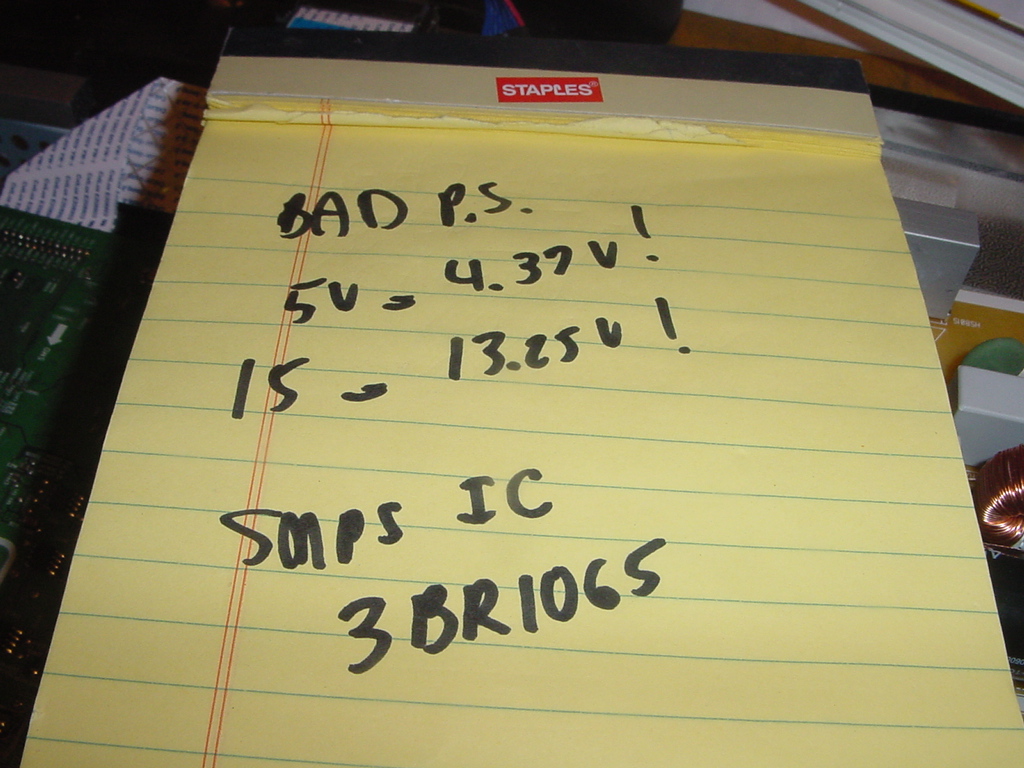 STAPLES®
BAD P.S.
5V = 4.37V!
15 = 13.25V!
SMPS IC
3BR1065